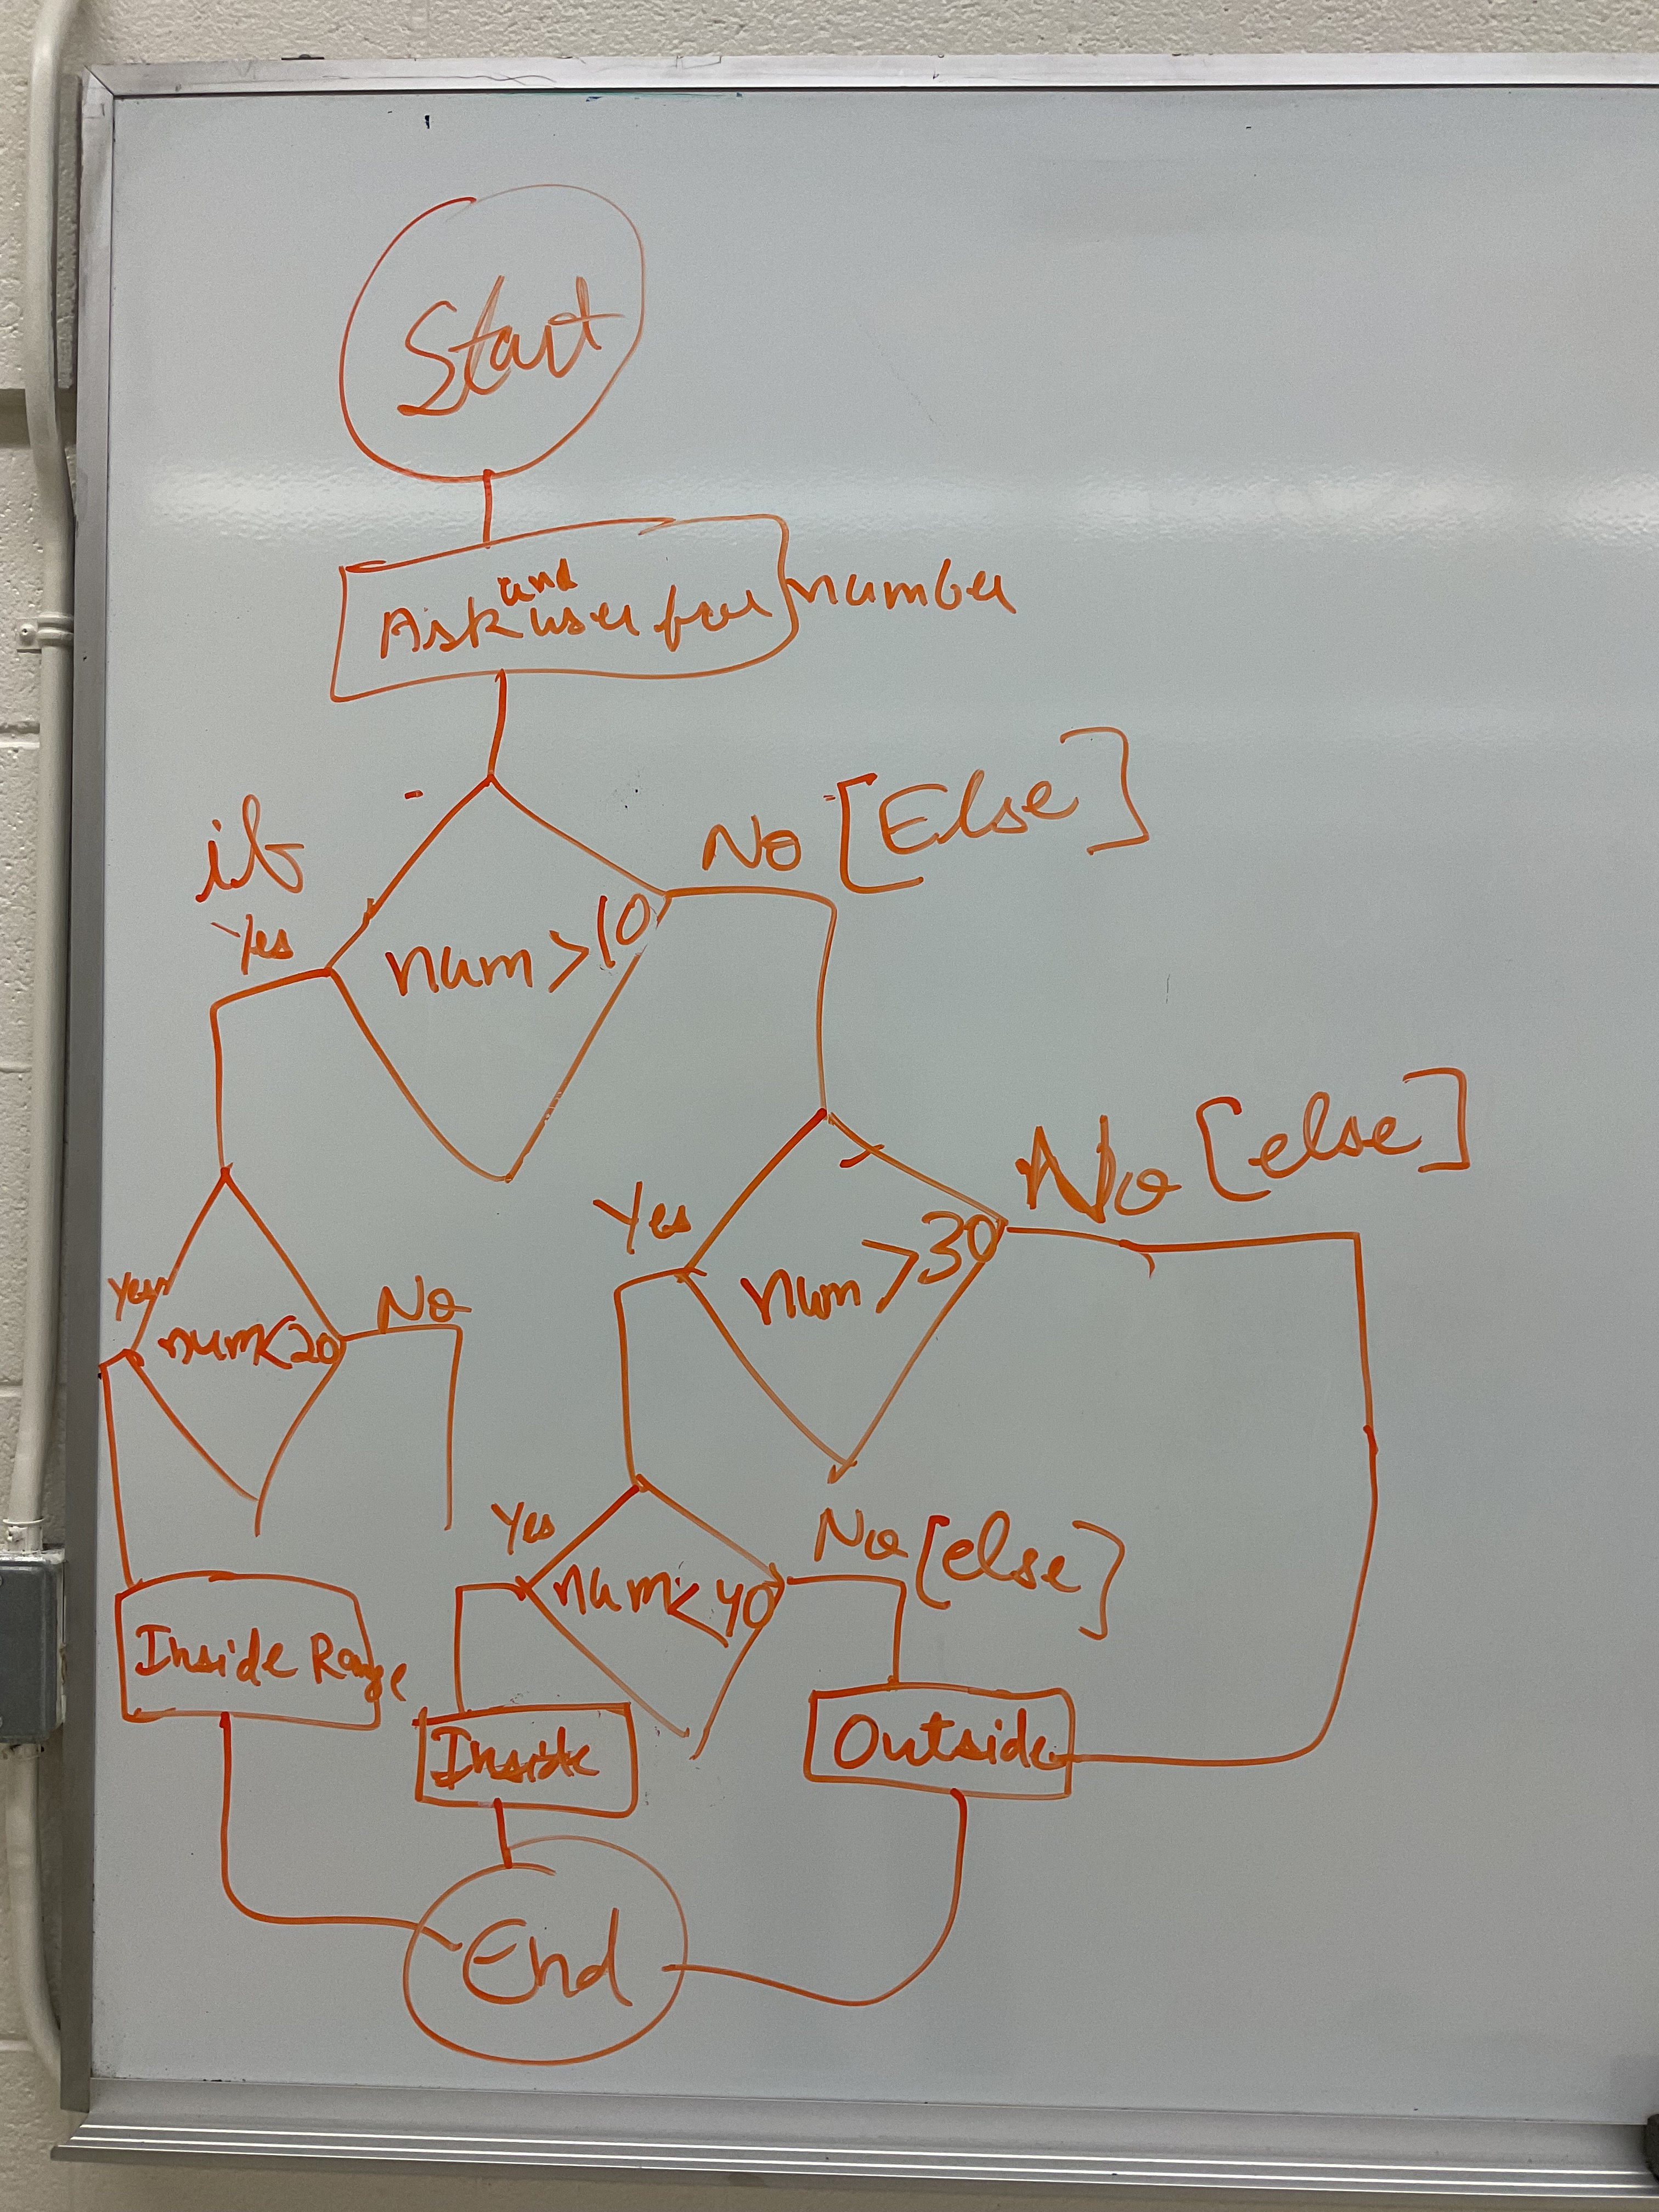 Start
and
Ask user for number
if
Yes
num > 10
No [Else]
Yes
num < 20
No
Yes
num > 30
No [else]
Yes
num < 40
No [else]
Inside Range
Inside
Outside
End